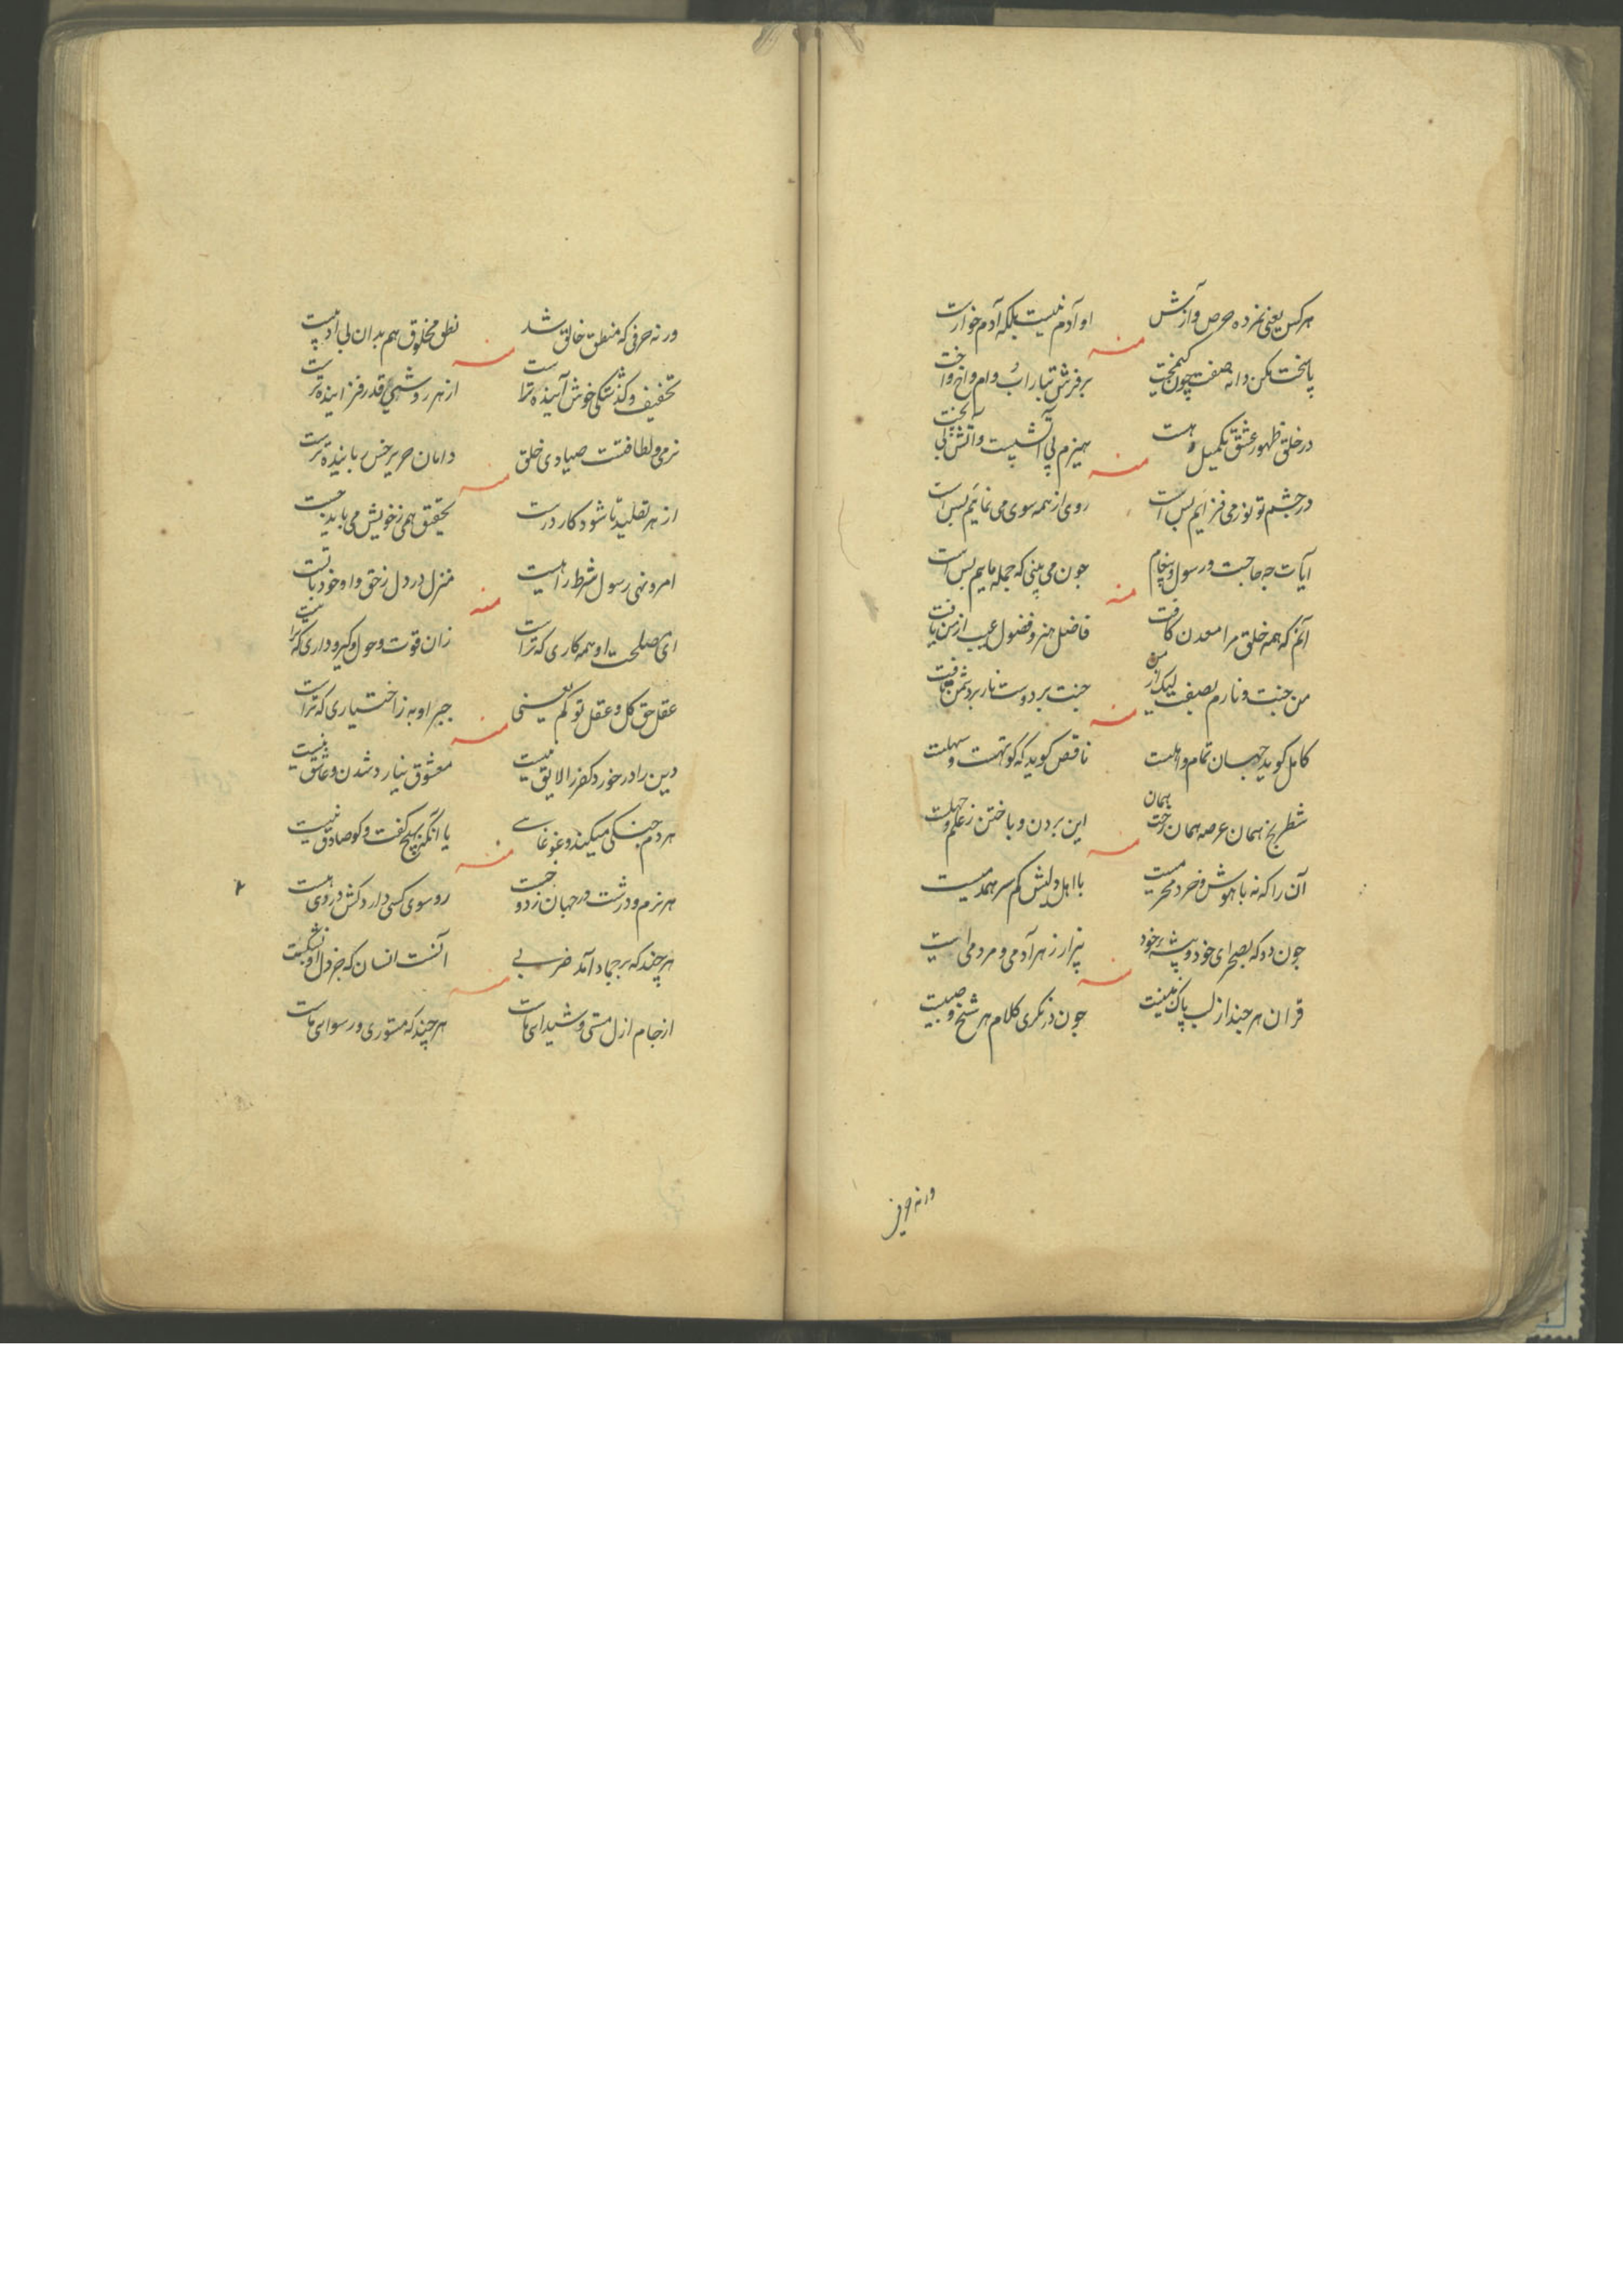 هر کس یعنی نمرده حرص و آزش
او آدم نیست بلکه آدم خوارست
منه
در خلق ظهور عشق تکمیل و هست
منه
در چشم تو نور می فزایم بس است
روی از همه سوی می نمایم بس است
آیات چه حاجت و رسول و پیغام
چون می بینی که جمله مایم بس است
منه
آنم که همه خلق مرا معدن کافت
فاضل هنر و فضول عیب از من یافت
من جنت و نارم بصفت لیک از من
جنت بر دوست نار بر دشمن تافت
منه
کامل کوید جهان تمام و اهلست
ناقص کوید که کوتهست و سهلست
شطرنج همان عرصه همان رخت همان
این بردن و باختن ز علم و جهلست
منه
آن را که نه با هوش و خرد محرمیست
با اهل دلش کم سر همدمیست
چون دد که بصحرای خود و بیشه خود
بیزار ز هر آدمی و مردمی است
منه
قران هر چند از لب پاک نبیست
چون در نکری کلام هر شیخ و صبیست
ورنه حرفی
ورنه حرفی که منطق خالق شد
نطق مخلوق هم بدان بی ادبیست
منه
تخفیف و کذشتکی خوش آینده ترا ست
از هر روشی قدر فزاینده ترست
نرمی و لطافتست صیادی خلق
دامان حریر خس رباینده ترست
منه
از هر تقلید تا شود کار درست
تحقیق همی ز خویش می باید جست
امر و نهی رسول شرط راهیست
منزل در دل ز حق و او خود با تست
منه
ای مصلحت او همه کاری که تراست
زان قوت و حول و کیر و داری که تراست
عقل حق کل و عقل تو کم یعنی
جبر او به ز اختیاری که تراست
منه
دین را در خورد کفر را لایق نیست
معشوق نیارد شدن و عاشق نیست
هر دم جنکی میکند و غوغایی
با آنکه بهیچ کفت و کو صادق نیست
منه
هر نرم و درشت در جهان زد و جست
رو سوی کسی دارد کش درد وی هست
هر چند که بر جماد آمد ضربی
آنست انسان که جز دل او نشکست
منه
از جام ازل مستی و شیدای ماست
هر چند که مستوری و رسوای ماست